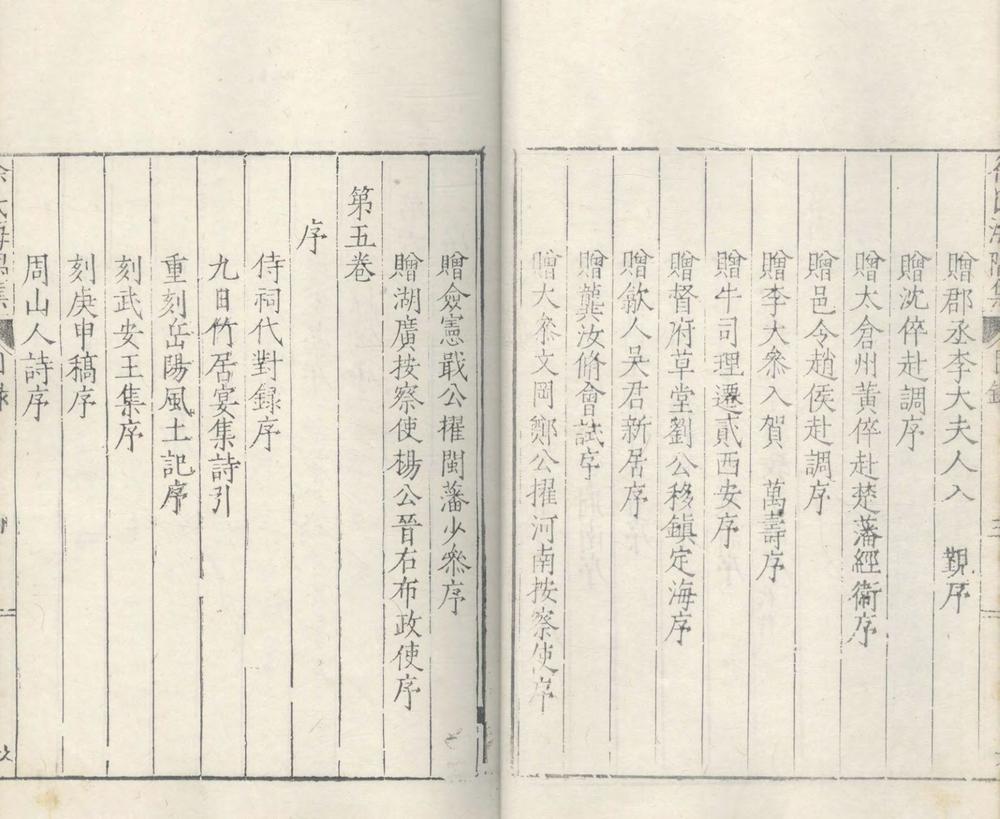 贈郡丞李大夫人入　覲序
贈沈倅赴調序
贈太倉州黃倅赴楚藩經衛序
贈邑令趙侯赴調序
贈李大叅入賀　萬壽序
贈牛司理遷貳西安序
贈督府草堂劉公移鎮定海序
贈歙人吳君新居序
贈龔汝脩會試序
贈大叅文岡鄭公擢河南按察使序
贈僉憲戢公擢閩藩少叅序
贈湖廣按察使楊公晉右布政使序
第五卷
序
侍祠代對錄序
九日竹居宴集詩引
重刻岳陽風土記序
刻武安王集序
刻庚申稿序
周山人詩序